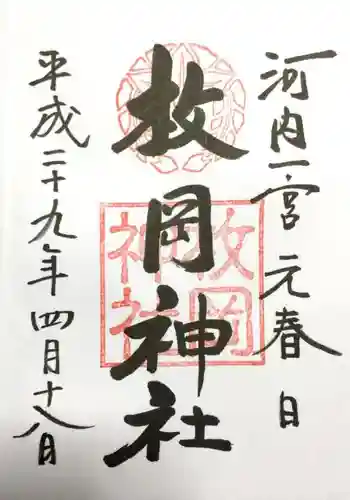 河内一宮 元春日
枚岡神社
平成二十九年四月十八日
枚岡
神社